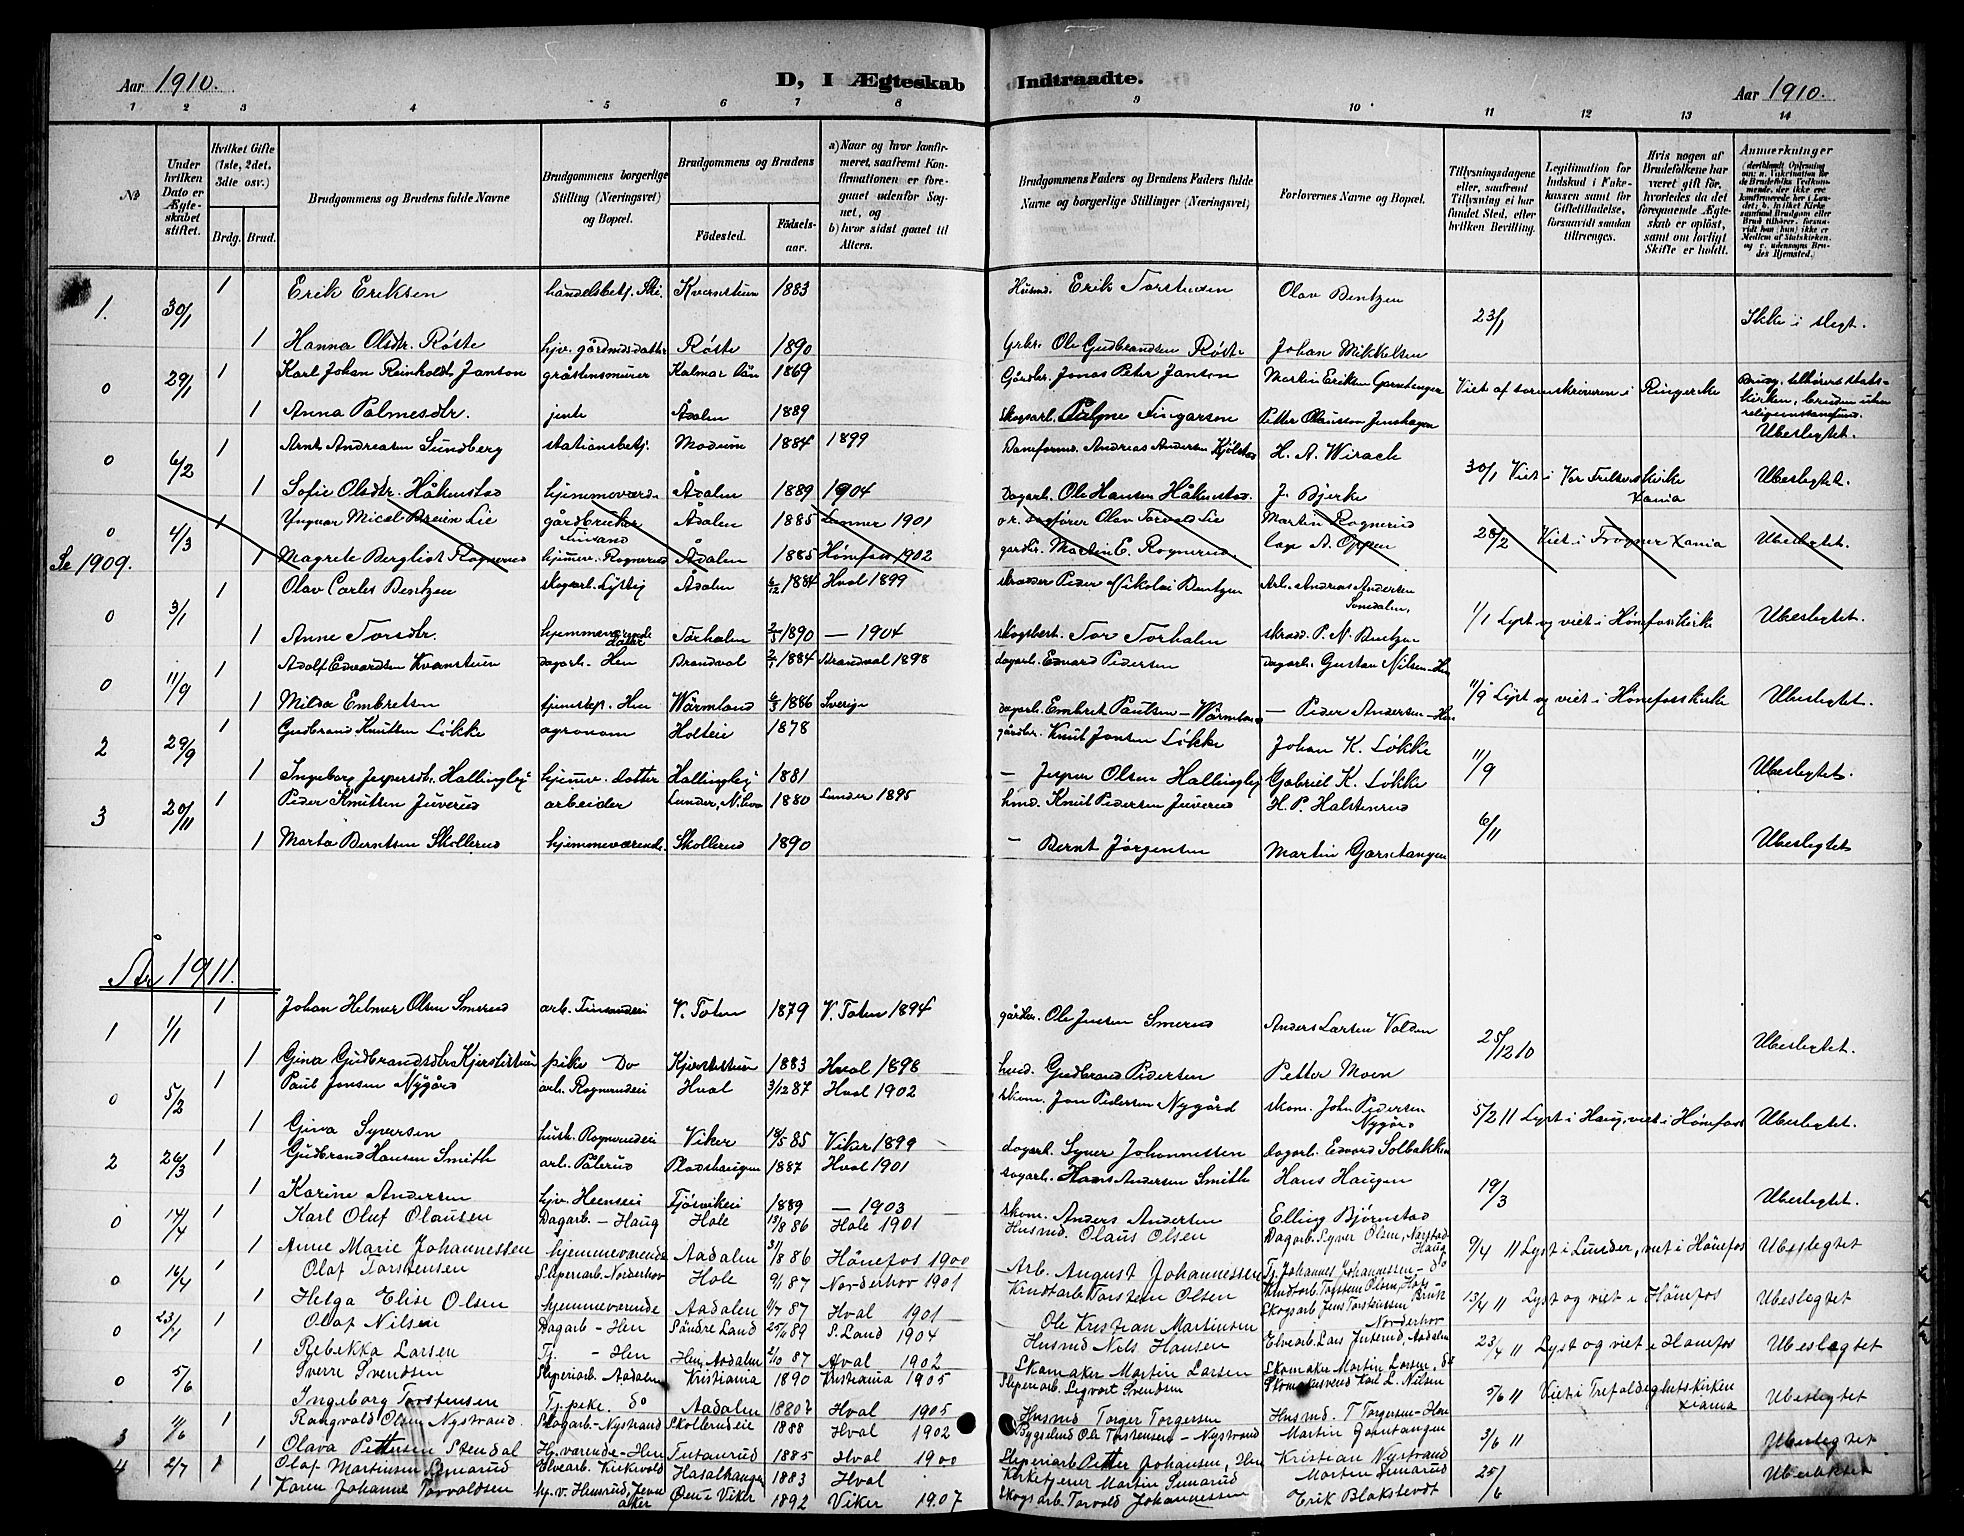 Aar 1910. D, I Ægteskab Indtraadte. Aar 1910.
1 2 3 4 5 6 7 8 9 10 11 12 13 14
No
Under hvilken Dato er Ægteskabet stiftet.
Hvilket Gifte (1ste, 2det, 3dte osv.)
Brdg. Brud.
Brudgommens og Brudens fulde Navne
Brudgommens borgerlige Stilling (Næringsvei) og Bopæl.
Brudgommens og Brudens
Fødested. Fødselsaar.
a) Naar og hvor konfirmeret, saafremt Konfirmationen er foregaaet udenfor Sognet, og b) hvor sidst gaaet til Alters.
Brudgommens Faders og Brudens Faders fulde Navne og borgerlige Stillinger (Næringsvei)
Forlovernes Navne og Bopæl.
Tillysningsdagene eller, saafremt Tillysning ei har fundet Sted, efter hvilken Bevilling.
Legitimation for Indskud i Enkekassen samt for Giftetilladelse, forsaavidt saadan tiltrænges.
Hvis nogen af Brudefolkene har været gift før, hvorledes da det foregaaende Ægteskab er opløst, samt om lovligt Skifte er holdt.
Anmærkninger
1. 30/1 1 Erik Eriksen handelsbetj. Ski. Kvernstuen 1883 Husmd. Erik Torstensen Olav Bentzen 23/1 Ikke i slegt.
1 Hanna Olsdtr. Røste hjv. gårdmdsdatter Røste 1890 Grbr. Ole Gudbrandsen Røste Johan Mikkelsen
0 29/1 1 Karl Johan Reinholdt Janson gråstensmurer Kalmar Län 1869 Gårdbr. Jonas Peter Janson Martin Eriksen Garntangen Viet af sorenskriveren i Ringerike Brudg. tilhører statskirken, bruden uden religionssamfund. Ubeslegtet.
1 Anna Palmesdtr. jente Ådalen 1889 Skogsarb. Palme Fingarson Petter Olausson Jenshagen
0 6/2 1 Arnt Andreasen Sundberg stationsbetj. Modum 1884 1899 Damformd. Andreas Andersen Kjølstad H. A. Wirach 30/1 Viet i Vor Frelsers kirke Xania Ubeslegtet.
1 Sofie Olsdtr. Håkenstad hjemmevær. Ådalen 1889 1904 Dagarb. Ole Hansen Håkenstad J. Bjerke
0 4/3 1 Yngvar Micael Breien Lie gårdbruker Finsand Ådalen 1885 Lunner 1901 o.r. sagfører Olav Torvald Lie Martin Rognerud 28/2 Viet i Frogner Xania Ubeslegtet.
Se 1909. 1 Magrete Bergliot Rognerud hjemv. Rognerud Ådalen 1885 Hønefoss 1902 gårdbr. Martin E. Rognerud A. Oppen
0 3/1 1 Olav Carles Bentzen skogsarb. Lysbj. Ådalen 6/12 1884 Hval 1899 skrædder Peder Nikolai Bentzen Arb. Andreas Andersen Somdalen, 1/1 Lyst og viet i Hønefos kirke Ubeslegtet.
1 Anne Torsdtr. hjemmeværende datter Torhalen 2/3 1890 — 1904 skogsbest. Tor Torhalen skræd. P. N. Bentzen
0 11/9 1 Adolf Edvardsen Kvenstuen dagarb. Hen Brandval 2/1 1884 Brandval 1898 dagarb. Edvard Pedersen dagarb. Gustav Nilsen - Hen 11/9 Lyst og viet i Hønefoss kirke Ubeslegtet.
1 Milda Embretsen tjenstep. Hen Wärmland 6/3 1886 Sverige dagarb. Embret Paulsen - Wärmland — Peder Andersen - Hen
2 29/9 1 Gudbrand Knutsen Løkke agronom Holteie 1878 gårdbr. Knut Jonsen Løkke Johan K. Løkke 11/9 Ubeslegtet.
1 Ingeborg Jespersdtr. Hallingby hjemv. datter Hallingby 1881 — Jesper Olsen Hallingby Gabriel K. Løkke
3 20/11 1 Peder Knutsen Juverud arbeider Lunder 1880 Lunder 1895 hmd. Knut Pedersen Juverud H. P. Halstenrud 6/11 Ubeslegtet
1 Marta Berntsen Skollerud hjemmeværende. Skollerud 1890 — Bernt Jørgensen Martin Garntangen
År 1911.
1 1/1 1 Johan Helmer Olsen Smerud arb. Finsandeie V. Toten 1879 V. Toten 1894 gårdbr. Ole Jensen Smerud Anders Larsen Volden 25/12 10 Ubeslegtet.
1 Gina Gudbrandsdtr. Kjerstistuen pike Do Kjerstistuen 1883 Hval 1898 hmd. Gudbrand Pedersen Petter Moen
0 5/2 1 Paul Jonsen Nygård arb. Rognerudei Hval 3/12 87 Hval 1902 skom. Jon Pedersen Nygård skom. John Pedersen Nygård 5/2 11 Lyst i Haug, viet i Hønefos Ubeslegtet.
1 Gina Syversen hush. Rognerudei Viker 19/5 85 Viker 1899 dagarb. Syver Johannessen dagarb. Edvard Solbakken
2 26/3 1 Gudbrand Hansen Smith arb. Pålerud Pladshaugen 1887 Hval 1901 sagarb. Hans Andersen Smith Hans Haugen 19/3 Ubeslegtet.
1 Karine Andersen hjv. Heensei Tjøsvikeie 1889 — 1903 skom. Anders Andersen Elling Bjørnstad
0 14/4 1 Karl Oluf Olausen Dagarb - Haug Hole 13/8 86 Hole 1901 Husmd. Olaus Olsen Dagarb. Syver Olsen, Norstad Haug 9/4 11 Lyst i Lunder, viet i Hønefos Ubeslegtet
1 Anne Marie Johannessen hjemmeværende Aadalen 31/8 86 Hønefos 1900 Arb. August Johannessen Tj. Johannes Johannessen - do
0 16/4 1 Olaf Torstensen Sliperiarb. Norderhov Hole 9/1 87 Norderhov 1901 Kundtarb Torsten Olsen Kundtarb. Torstein Olsen, Hofs Bruk 13/4 11 Lyst og viet i Hønefos Ubeslegtet
1 Helga Elise Olsen hjemmeværende Aadalen 2/7 87 Hval 1901 Ole Kristian Martinsen Skogsarb. Jens Torstensen Norderhov
0 23/1 1 Olaf Nilsen Dagarb - Hen Søndre Land 25/6 89 S. Land 1904 Husmd Nils Hansen Elvearb. Lars Juterud, Aadalen 23/4 11 Lyst og viet i Hønefos Ubeslegtet
1 Rebekka Larsen Tj. - Hen Hen, Aadalen 2/10 87 Hval 1902 Skomaker Martin Larsen Skomaker Martin Larsen, do
0 5/6 Sverre Svendsen Sliperiarb. Aadalen Kristiania 1890 Kristiania 1905 Sliperiarb. Sigvart Svendsen Skomakersvend Karl L. Nilsen 5/6 11 Viet i Trefoldighetskirken Xiania Ubeslegtet
Ingeborg Torstensen Tj. pike. do Aadalen 1880? Hval 1905 Husmd Torger Torgersen Husmd. T Torgersen - Hen
3 11/6 1 Rangvald Olsen Nystrand. Slagarb - Nystrand Skollerudeie 1888 Hval 1902 Bygselmd Ole Torstensen - Nystrand Martin Garntangen 3/6 11 Ubeslegtet
1 Olava Pettersen Stendal Hj. værende - Hen Tutanrud 1885 Hval 1900 Sliperiarb Petter Johansen, Hen Kristian Nystrand
4 2/7 1 Olaf Martinsen Semerud Elvearb. Kirkevold Hasalhaugen 1883 Hval Kirketjener Martin Semerud Morten Semerud 25/6 Ubeslektet
1 Karen Johanne Torvaldsen hj. v. Øen i Viker 1892 Viker 1907 Skogsarb. Torvald Johannessen Erik Blakstvedt